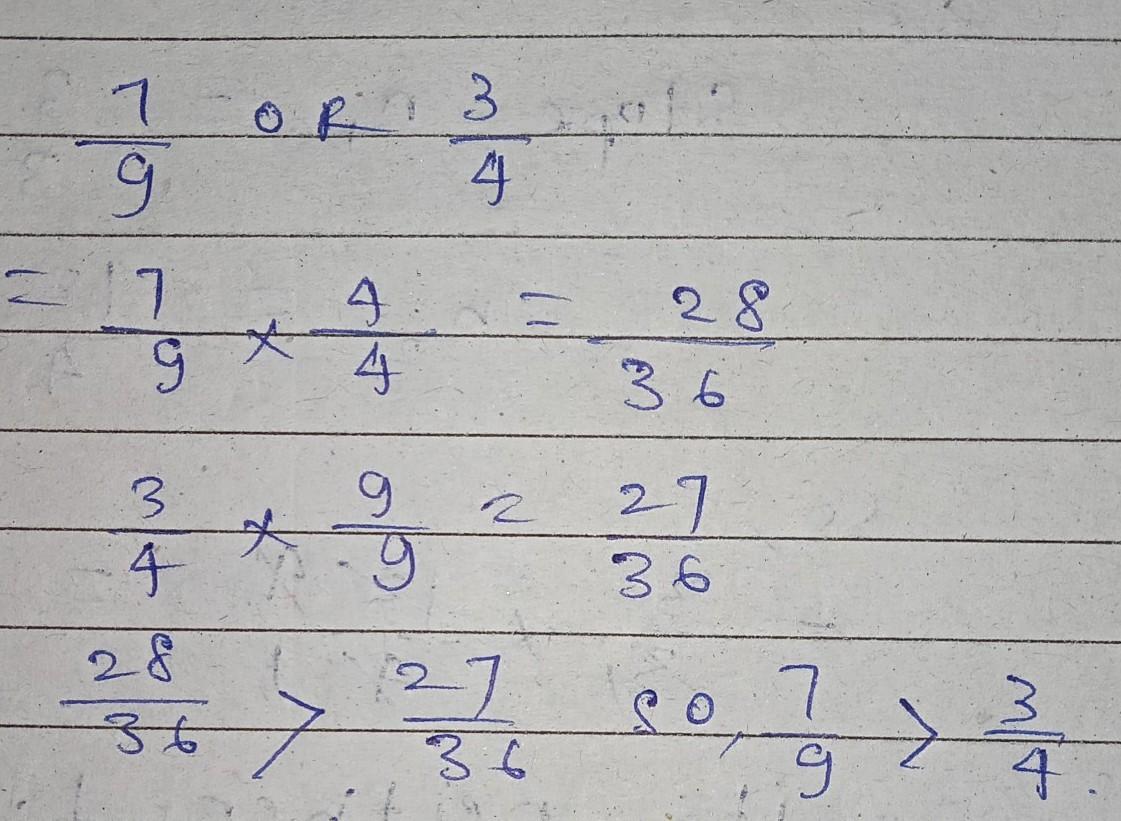 7/9 OR 3/4
= 7/9 × 4/4 = 28/36
3/4 × 9/9 = 27/36
28/36 > 27/36 so, 7/9 > 3/4.